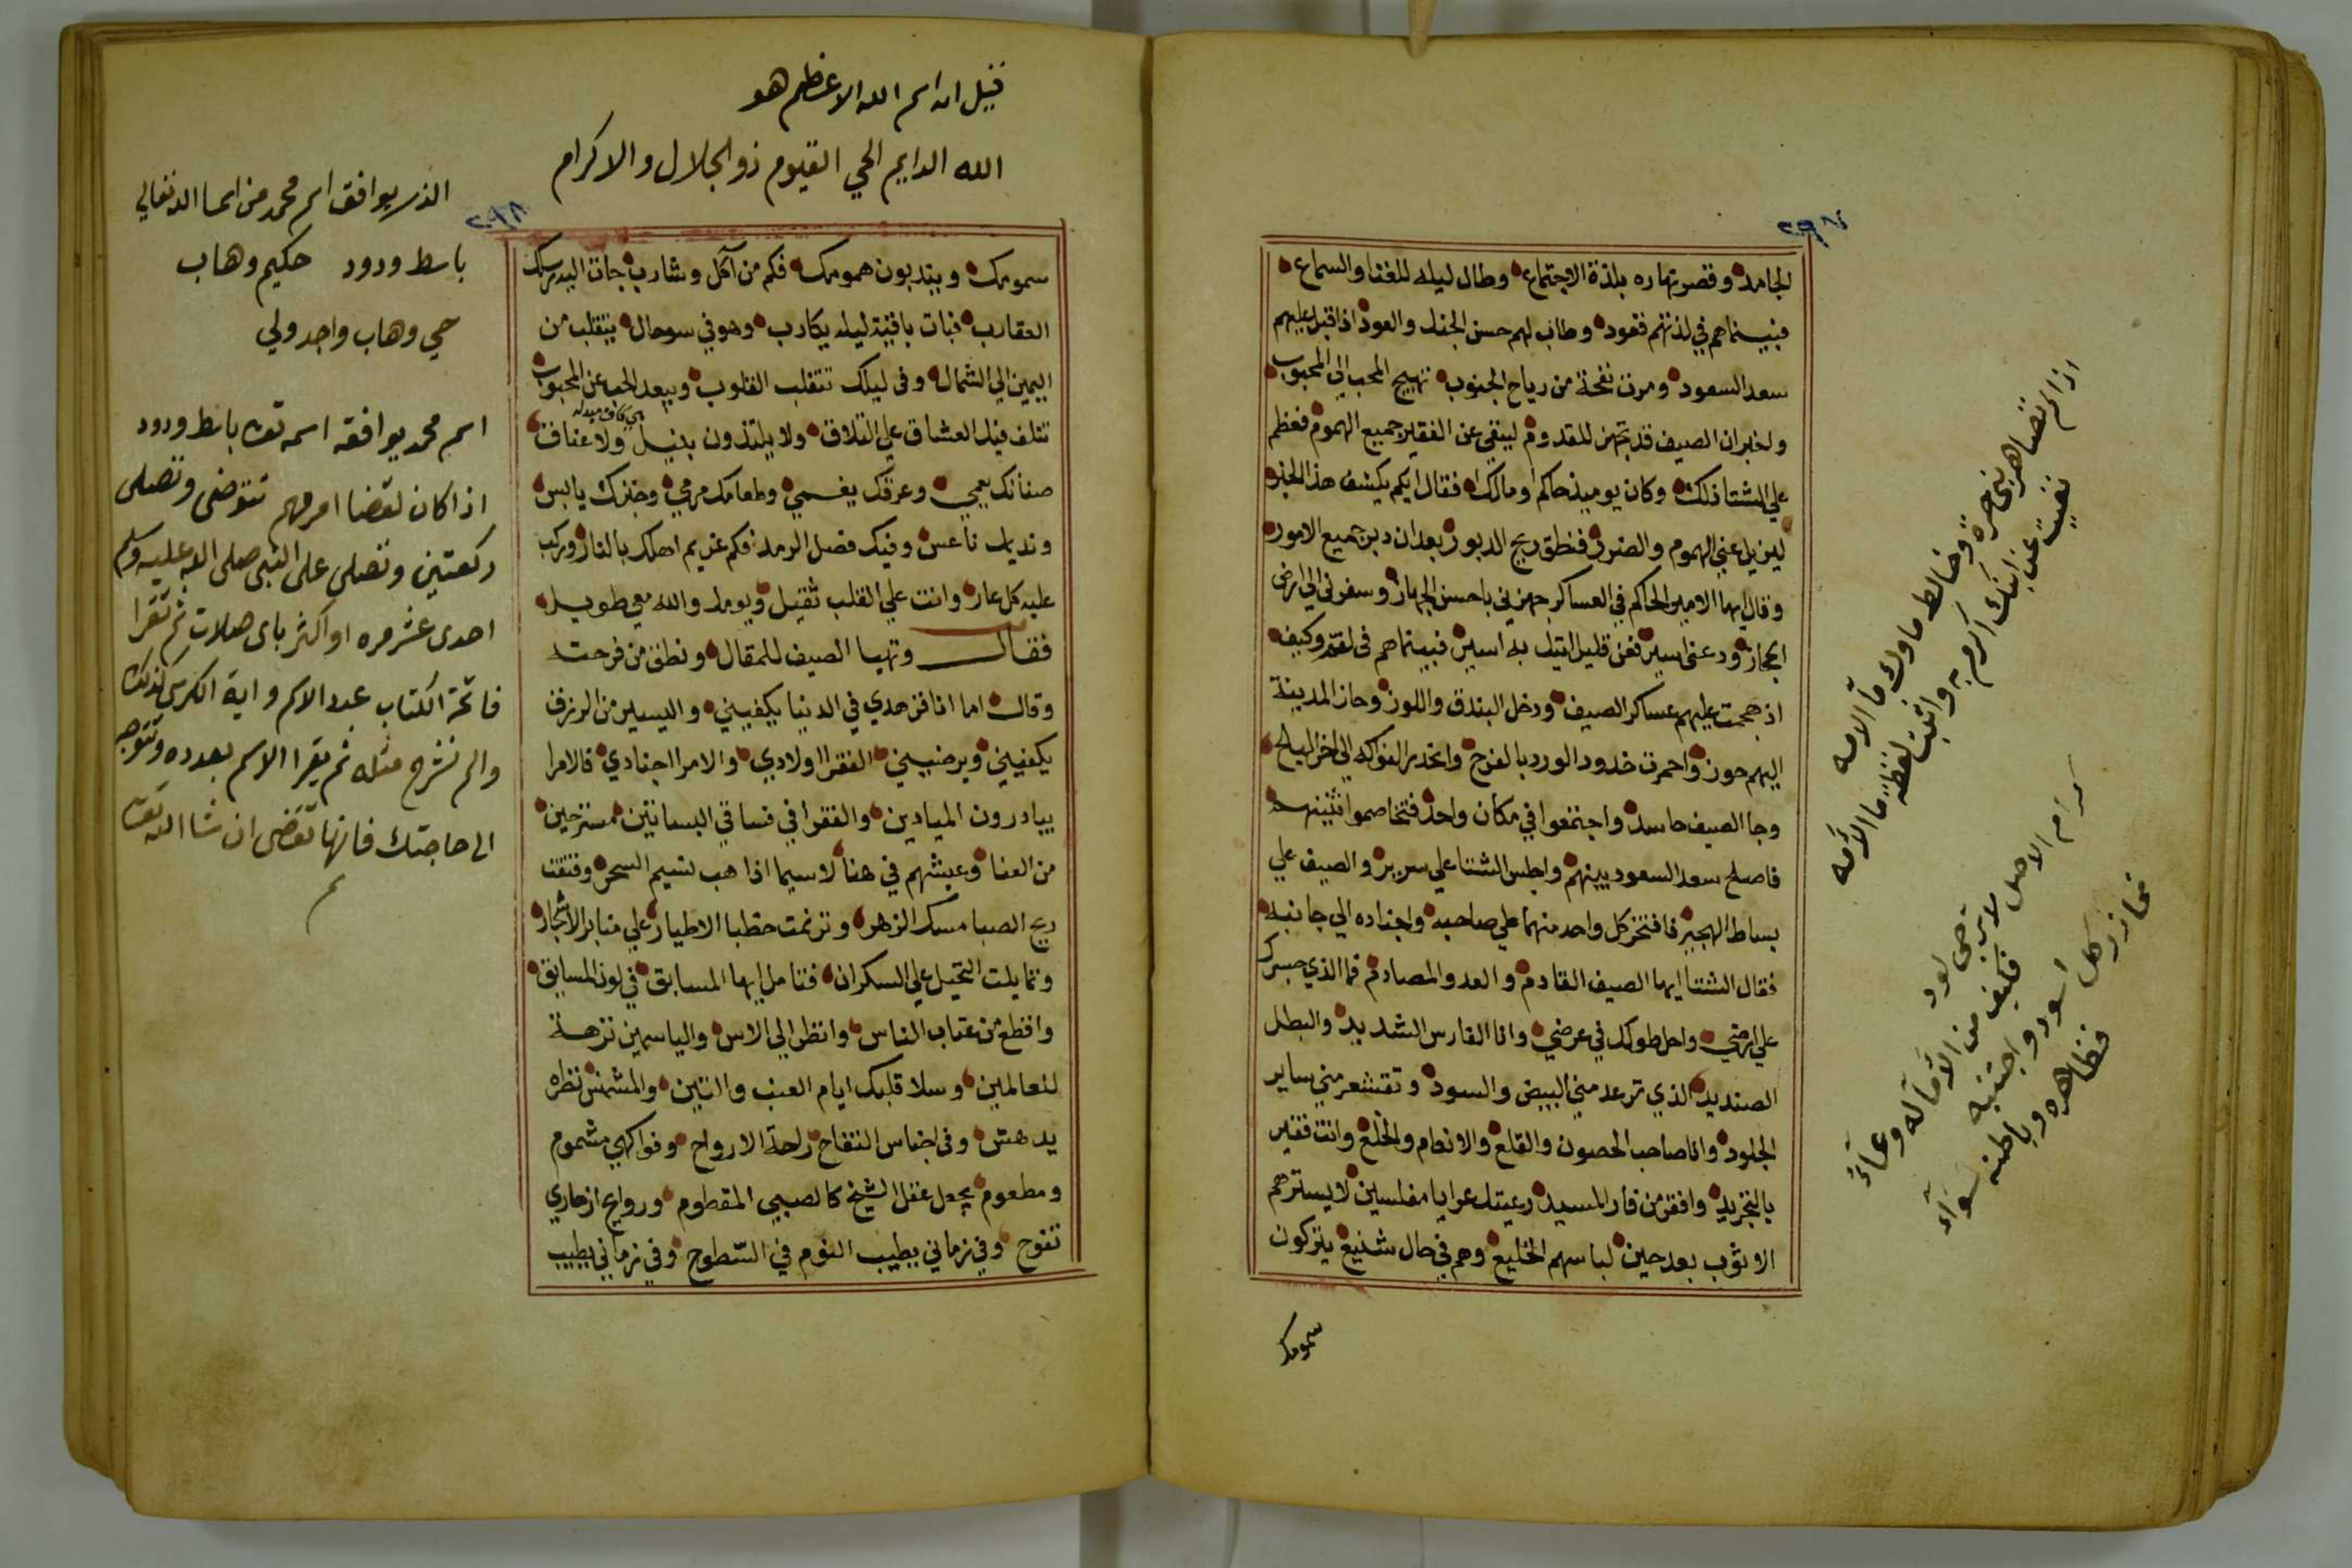 ٢٩٧
الجامد وقصر نهاره بلذة الاجتماع وطال ليله للغنا والسماع
فبينماهم في لذتهم قعود وطاب لهم حسن الجنك والعود اذا قبل عليهم
سعد السعود ومرت نفحة من رياح الجنوب تهيج المحب الي المحبوب
واخبر ان الصيف قد تجهز للقدوم لينفي عن الفقير جميع الهموم فعظم
علي الشتا ذلك وكان يوميذ حاكم او مالك فقال ايكم يكشف هذا الخبر
ليزيل عني الهموم والضرر فنطق ريح الدبور بعد ان دبر جميع الامور
وقال ايها الامير الحاكم في العساكر جهزني باحسن الجهاز وسفرني الي ارض
الحجاز ودعني اسير فعن قليل اتيك به اسير فبينماهم في
اذ هجمت عليهم عساكر الصيف ودخل البندق واللوز وحاز المدينة
اليهم حوز واحمرت خدود الورد بالفرح وانحدر الفواكه الي اخر البلح
وجا الصيف حاسد واجتمعوا في مكان واحد فتخاصموا اثنينهم
فاصلح سعد السعود بينهم واجلس الشتا علي سرير والصيف علي
بساط الهجير فافتخر كل واحد منهما علي صاحبه واجناده الي جانبه
فقال الشتا ايها الصيف القادم والعدو المصادم فما الذي جسرك
علي ارضي واحل طولك في عرضي وانا الفارس الشديد والبطل
الصنديد الذي ترعد مني البيض والسود وتقشعر مني ساير
الجلود وانا صاحب الحصون والقلع والانعام والخلع وانت فقير
بالتجريد وافقر من فار المسيد رعيتك عرايا مفلسين لا يسترهم
الا ثوب بعد حين لباسهم الخليع وهم في حال شنيع يتركون
سمومك
اذا لم
نفيت عن ابنك اكرم به واثبت لفظة ما الامه
فكيف من الامآ له وعاء
فظاهره وباطنه سواء
قيل ان اسم الله الاعظم هو
الله الدايم الحي القيوم ذو الجلال والاكرام
٢٩٨
سمومك ويندبون همومك فكم من آكل وشارب جات اليه منك
العقارب فبات باقية ليله يكارب وهو في سو حال يتقلب من
اليمين الي الشمال وفي ليلك تتقلب القلوب ويبعد المحب عن المحبوب
تتلف فيك العشاق علي التلاق ولا يلتذون بنيل ولا عناق
صنانك يعمي وعرقك يغمي وطعامك مرمي وخبزك يابس
ونديمك ناعس وفيك فصل الرمد فكم غريم اهلك بالنار وركب
عليه كل عار وانت علي القلب ثقيل ويومك والله معي طويل
فقال وتهيا الصيف للمقال ونطق من فرحته
وقال اما انا فزهدي في الدنيا يكفيني واليسير من الرزق
يكفيني ويرضيني الفقرا اولادي والامرا اجنادي فالامرا
يبادرون الميادين والفقرا في فساقي البساتين مستريحين
من العنا وعيشهم في هنا لاسيما اذا هب نسيم السحر وفتقت
ريح الصبا مسك الزهر وترنمت خطبا الاطيار علي منابر الاشجار
وتمايلت النخيل علي السكران فتامل ايها المسابق في لون المسابق
واقطع من عتاب الناس وانظر الي الاس والياسمين نزهة
للعالمين وسلا قلبك ايام العنب والتين والمشمش نظره
يدهش وفي اجناس التفاح راحة الارواح وفواكهي مشموم
ومطعوم يجعل عقل الشيخ كالصبي المفطوم وروايح ازهاري
تفوح وفي زماني يطيب النوم في السطوح وفي زماني يطيب
الذي يوافق اسم محمد من اسما الله تعالي
باسط ودود حكيم وهاب
حي وهاب واجد ولي
اسم محمد يوافقه اسمه تعه باسط ودود
اذا كان لقضا امر مهم تتوضي وتصلي
ركعتين وتصلي على النبي صلى الله عليه وسلم
احدى عشر مره او اكثر باي صلات ثم تقرا
فاتحة الكتاب عدد الاسم واية الكرسي كذلك
والم نشرح مثله ثم يقرا الاسم بعدده وتتوجه
الى حاجتك فانها تقضى ان شا الله تعه